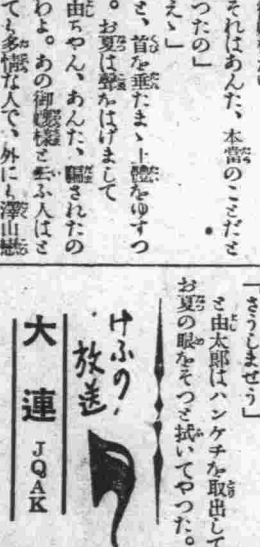 それはあんた、本當のことだと
つたの」
えゝ」
と、首を垂たまゝ上體をゆすつ
。お夏は聲をはげまして
由ちやん、あんた、騙されたの
わよ。あの御孃樣と云ふ人はと
ても多情な人で、外にも澤山戀
「さうしませう」
と由太郎はハンケチを取出して
お夏の眼をそつと拭いてやつた。
けふの
放送
大連
JQAK